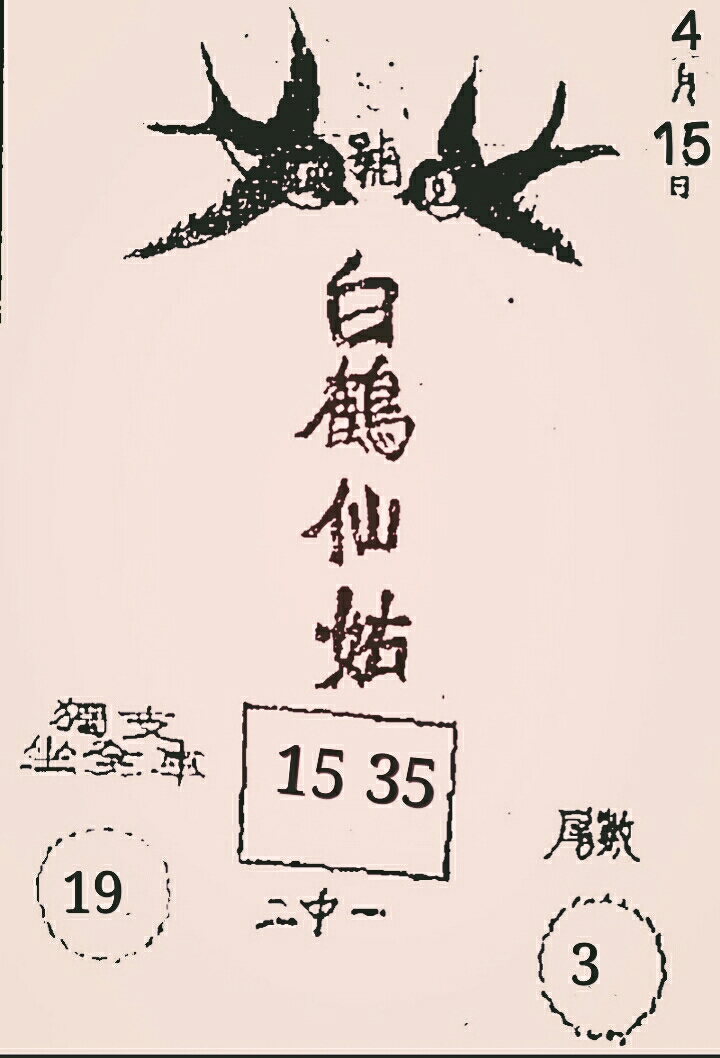 4
月
15
日
號
白
鶴
仙
姑
獨支
坐全車
15 35
二中一
19
尾數
3